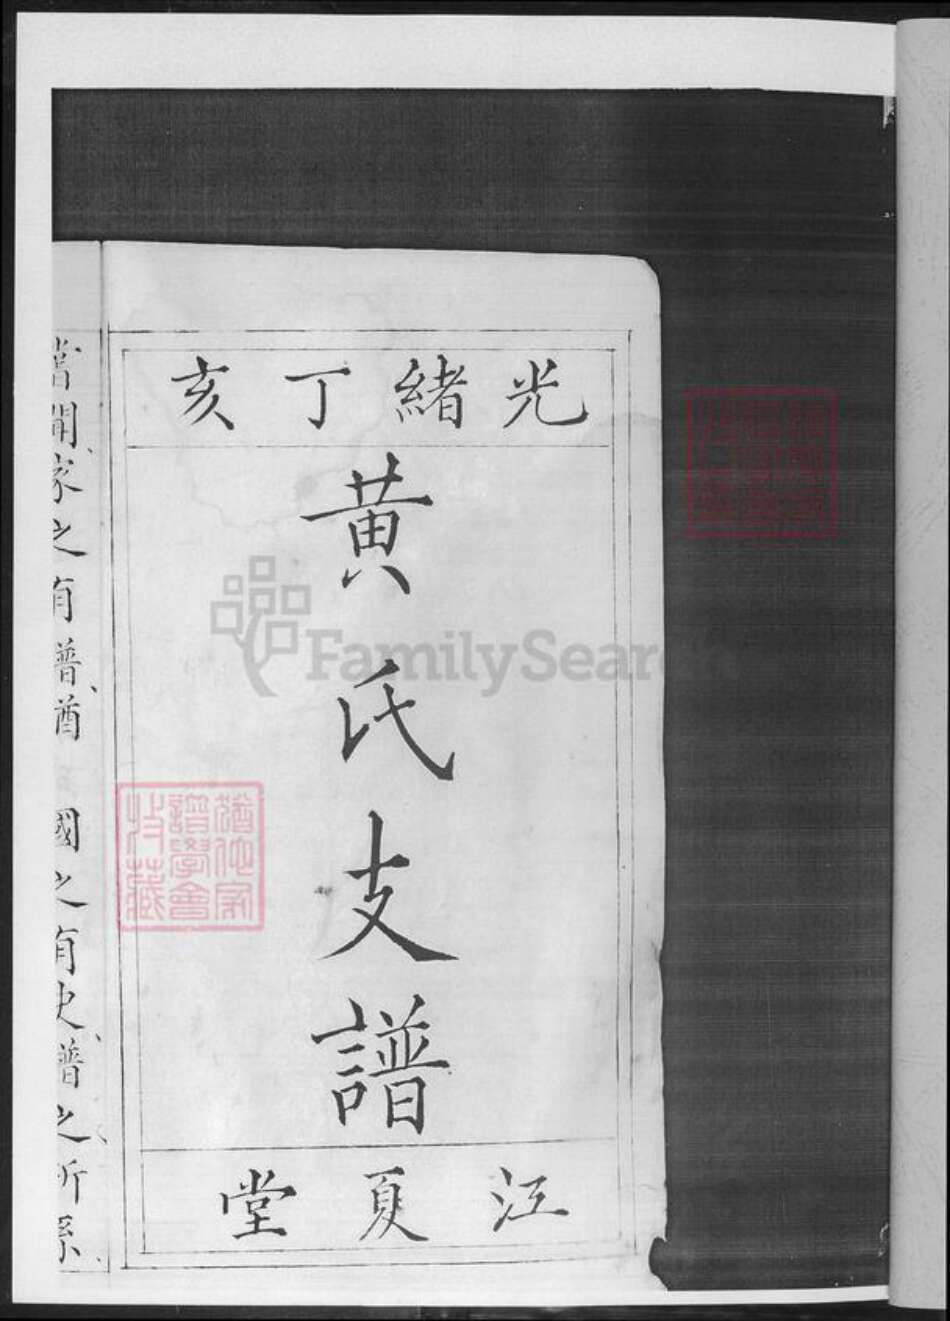 光緒丁亥
黄氏支譜
江夏堂
嘗聞家之有譜酋國之有史譜之所系
猶他家譜學會攷藏
FamilySearch